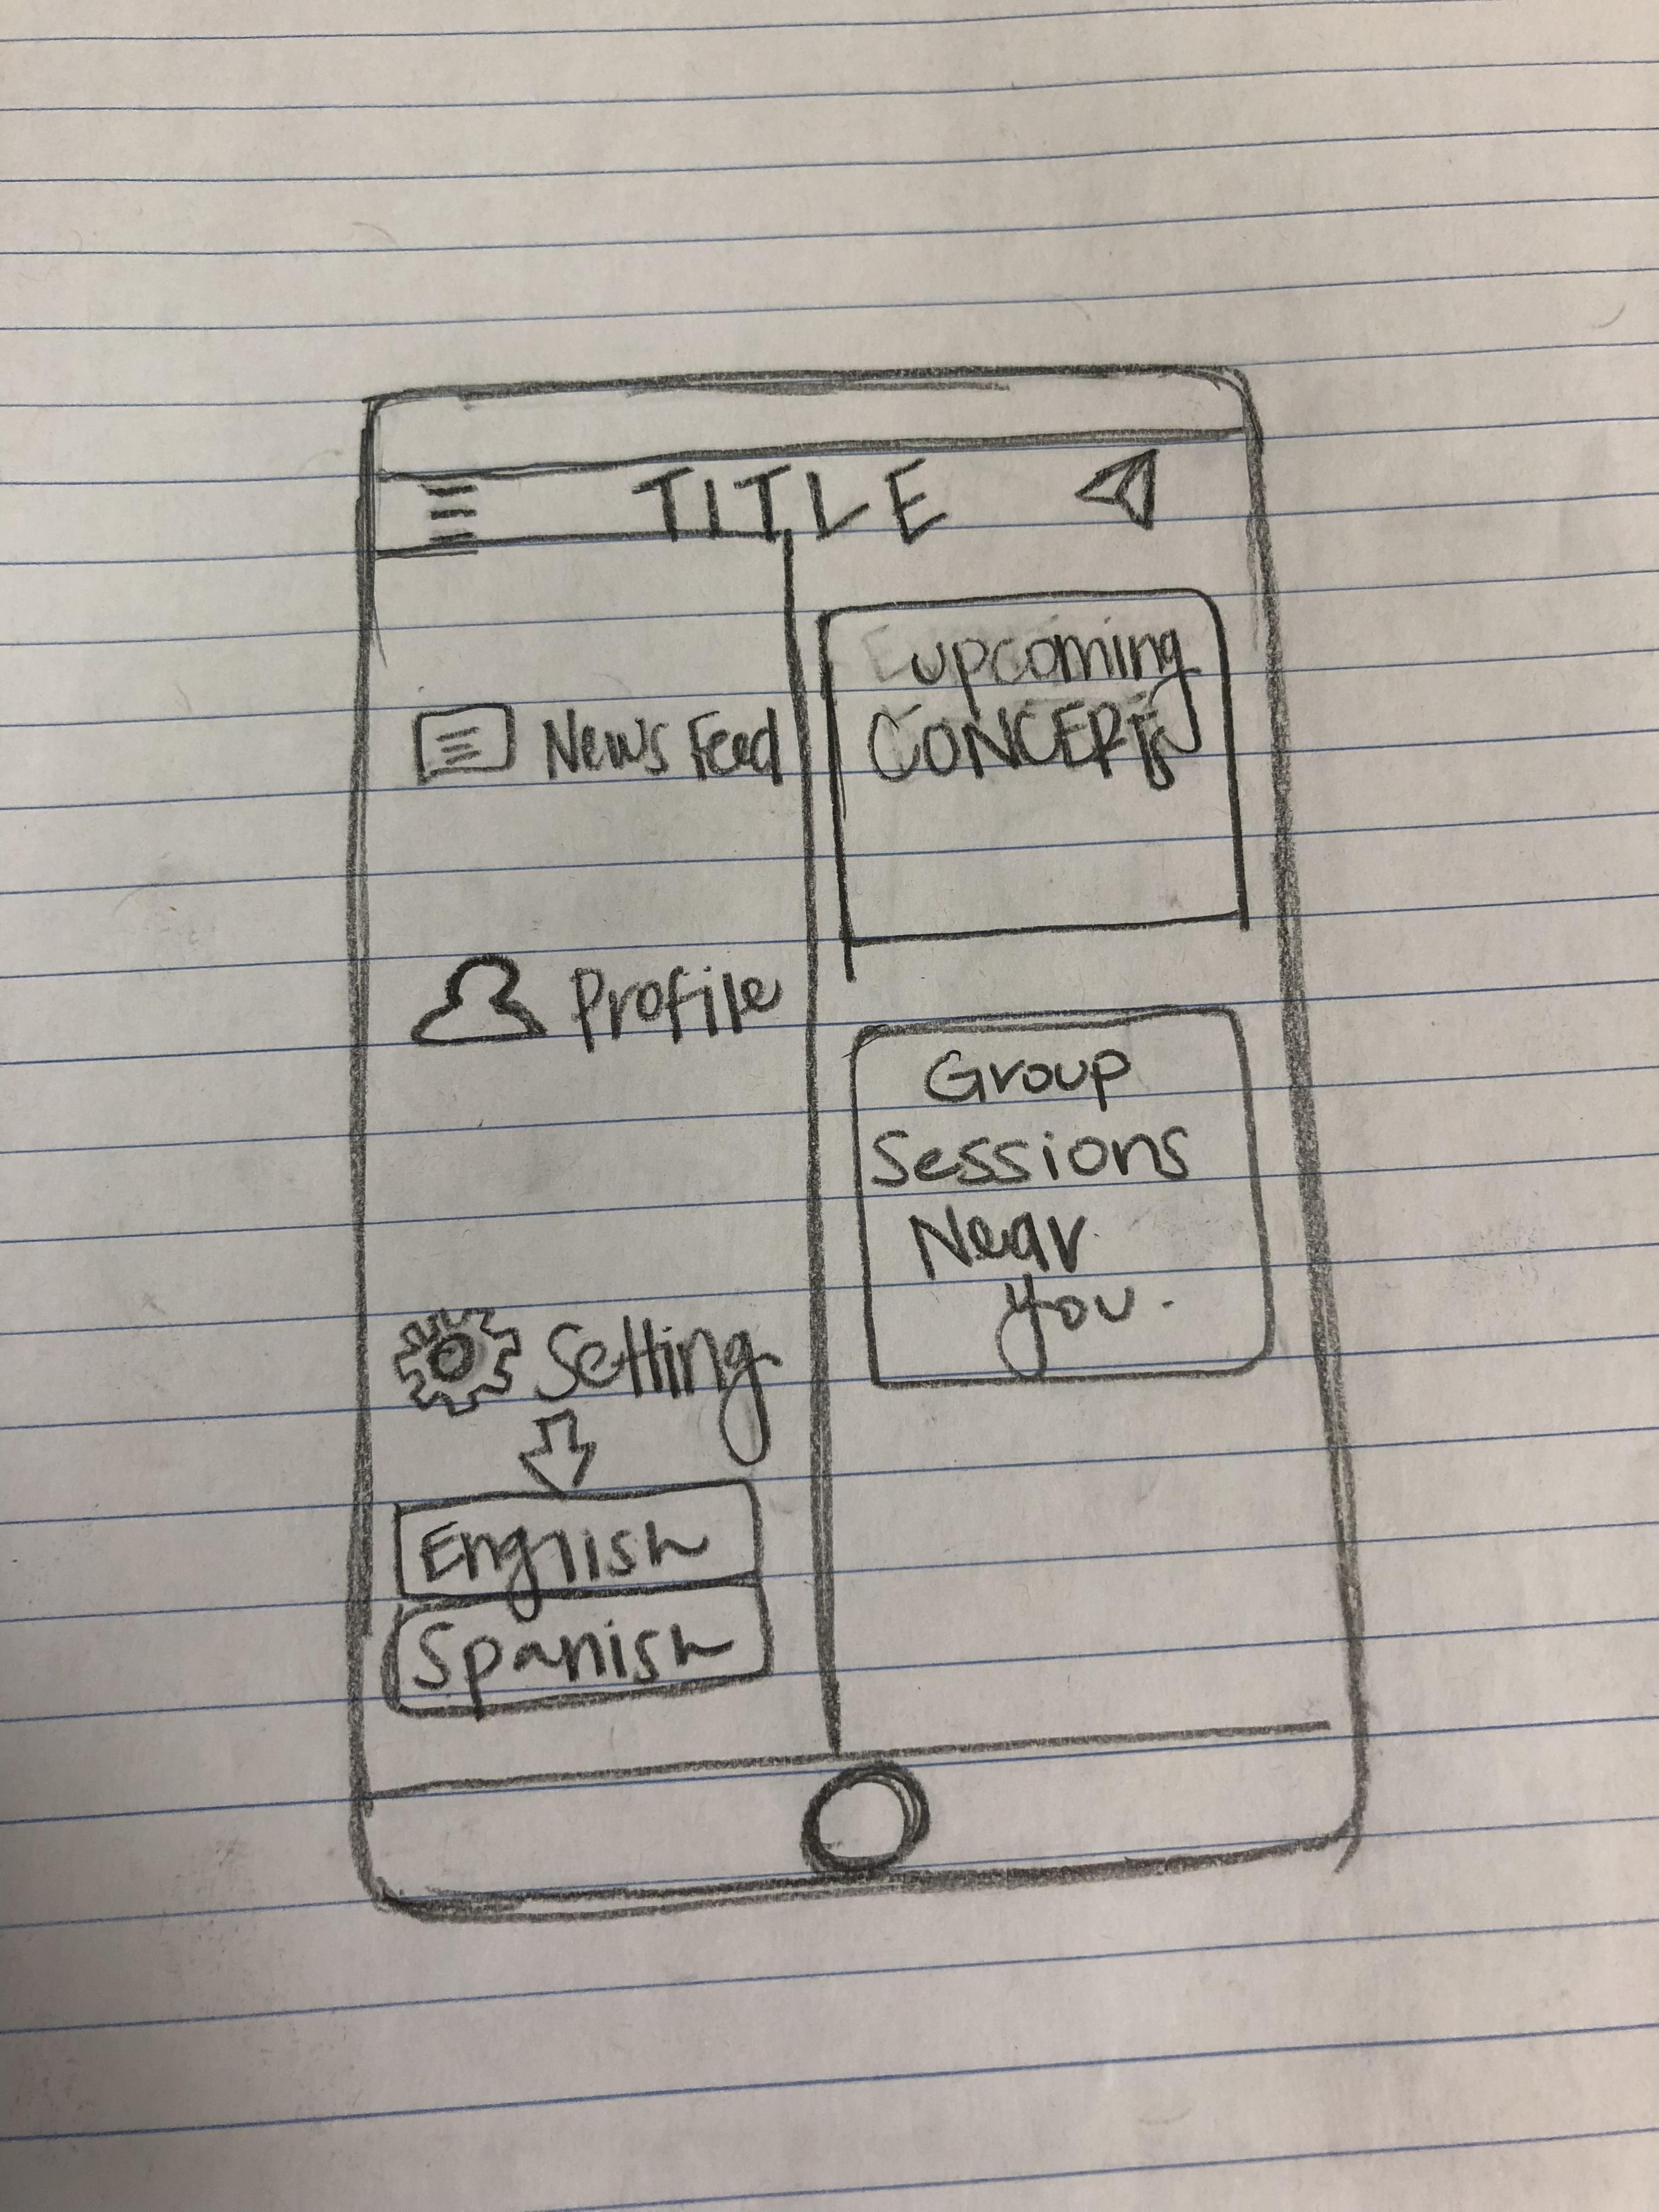 TITLE
News Feed
Profile
Setting
English
Spanish
upcoming
CONCERTS
Group
Sessions
Near
you.